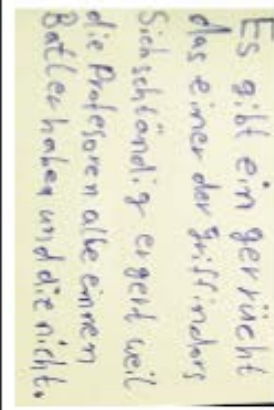 Es gibt ein gerrücht
das einer der griffindors
Sichschtändig ergert weil
die Profesoren alle einnen
Batler haben und die nicht.